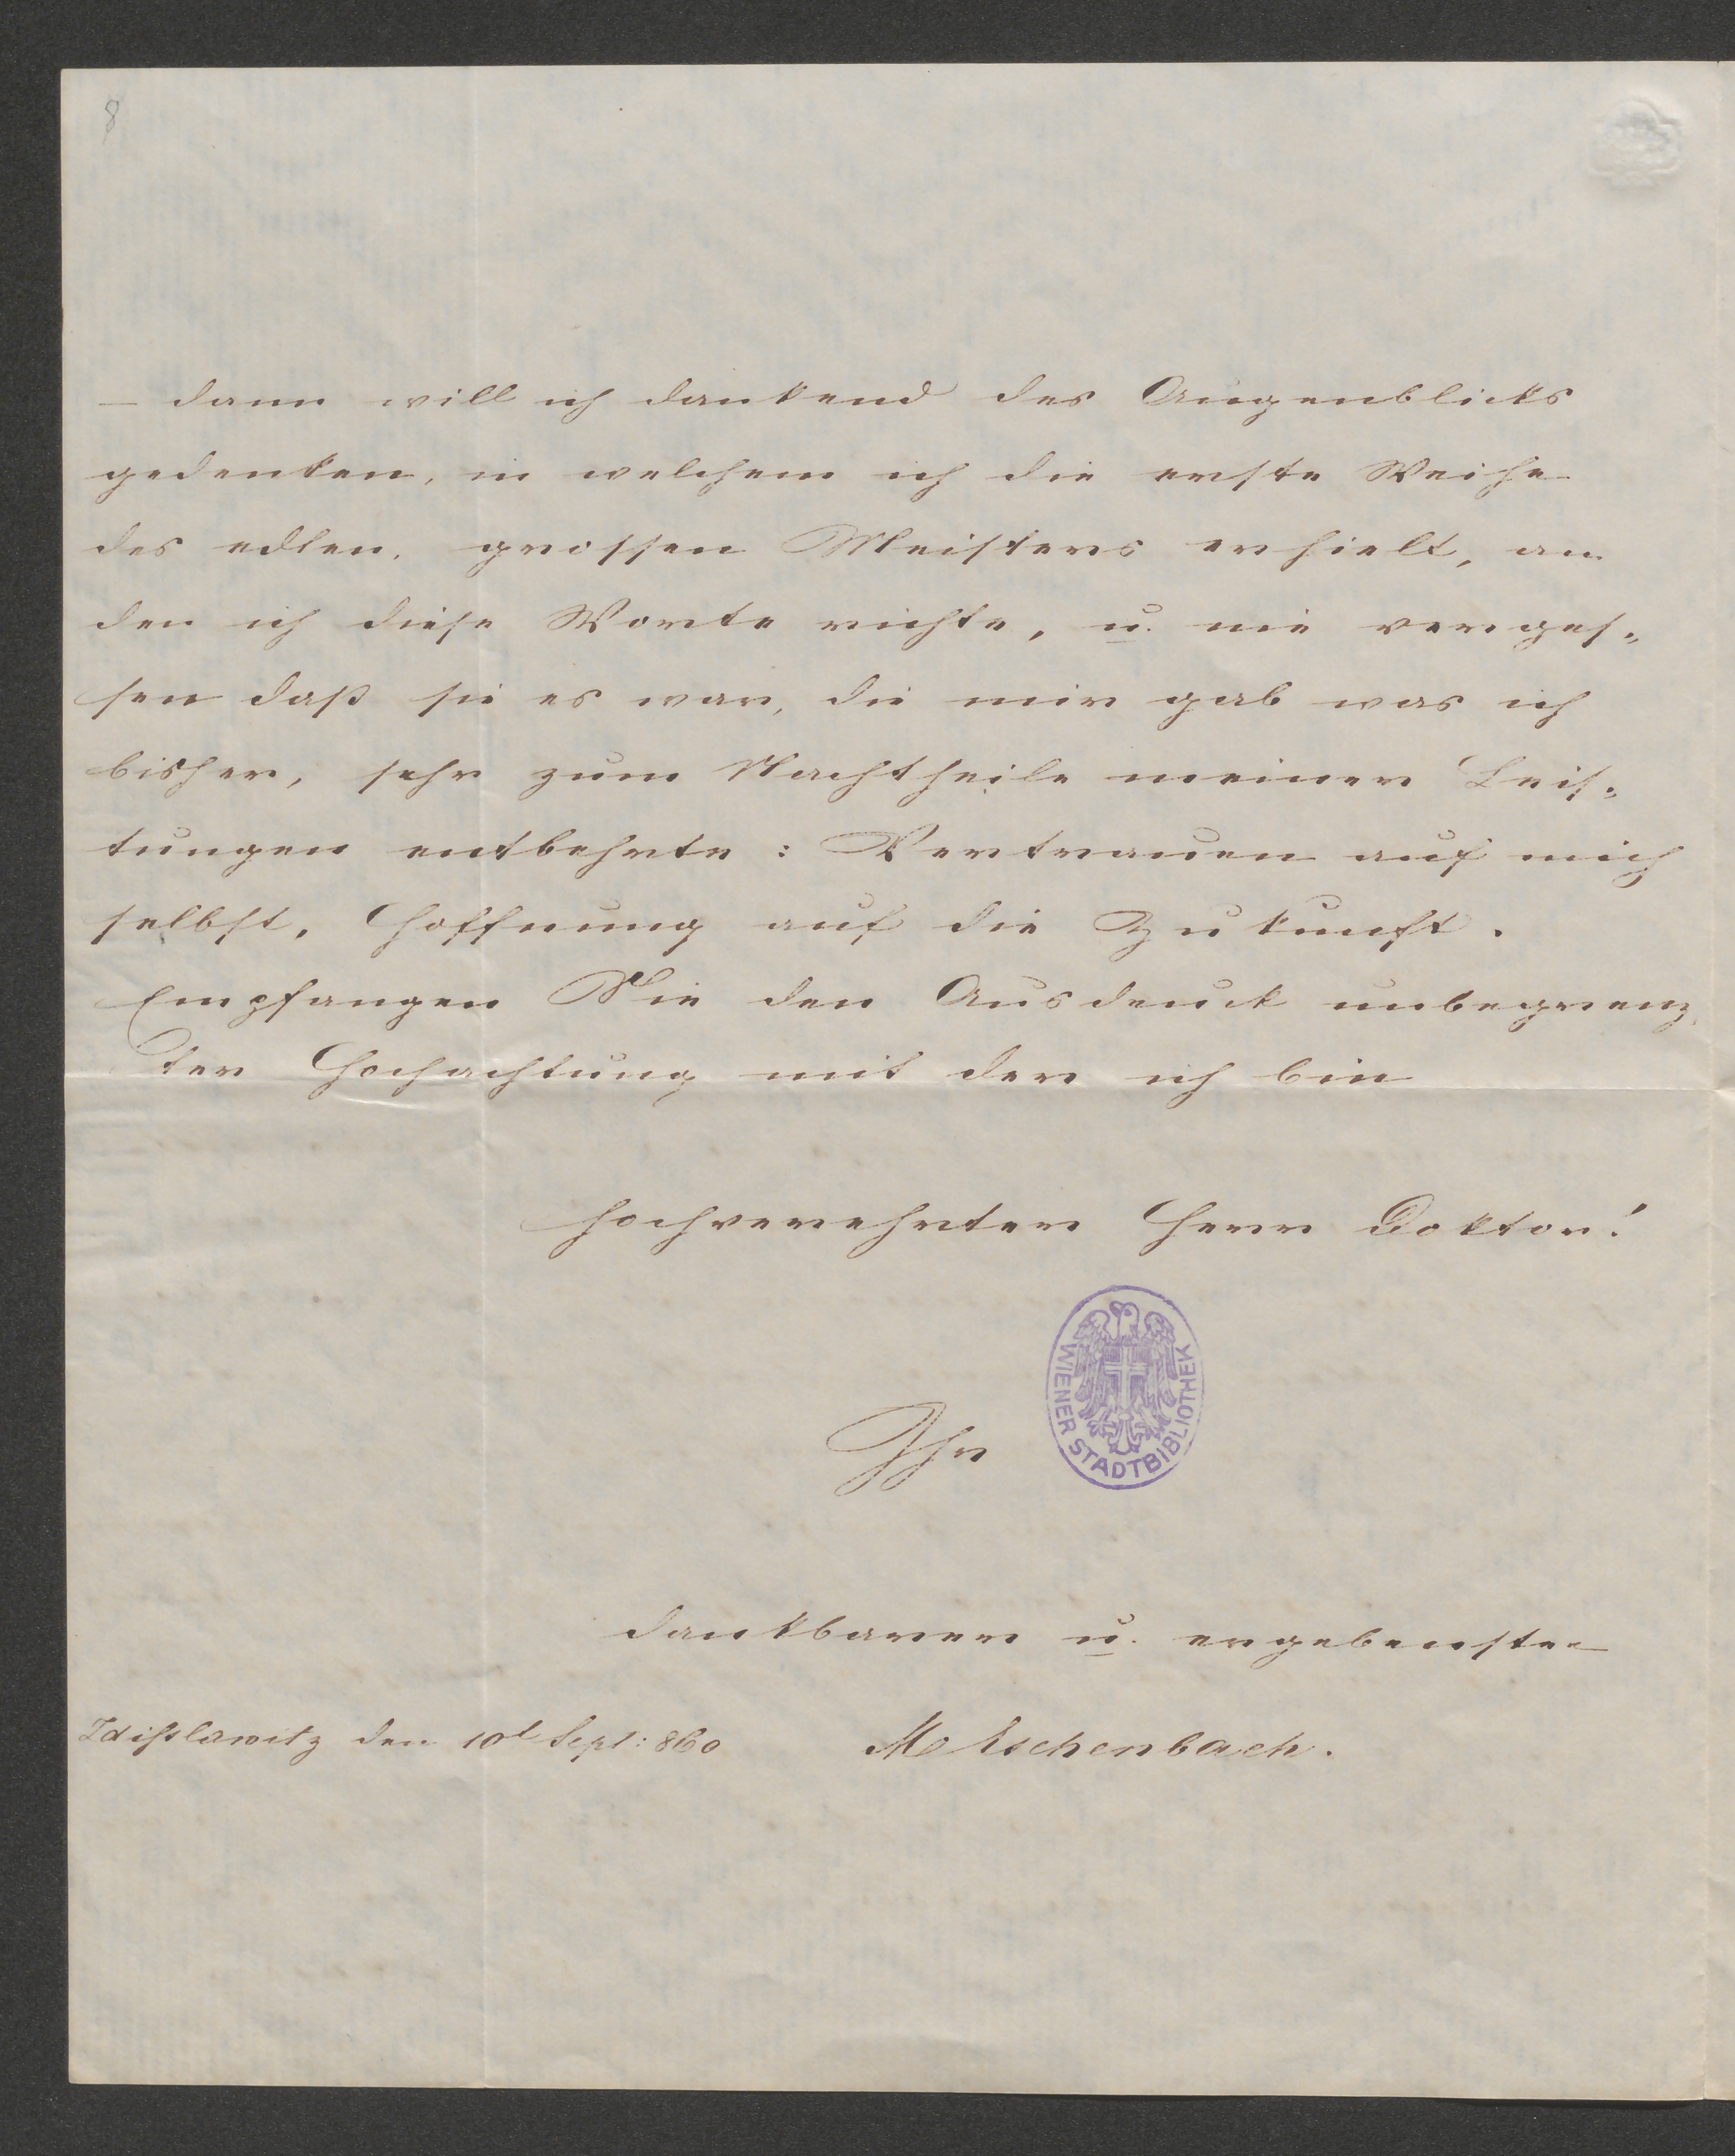 8
– dann will ich dankend des Augenblicks
gedenken, in welchem ich die erste Weihe
des edlen, grossen Meisters erhielt, an
den ich diese Worte richte, u. nie verges=
sen daß sie es war, die mir gab was ich
bisher, sehr zum Nachtheile meiner Leis=
tungen entbehrte: Vertrauen auf mich
selbst, Hoffnung auf die Zukunft.
Empfangen Sie den Ausdruck unbegrenz
ter Hochachtung mit der ich bin
hochverehrter Herr Doktor!
Ihr
WIENER STADTBIBLIOTHEK
dankbarer u. ergebenster
Zdißlawitz den 10t Sept: 860
M Eschenbach.